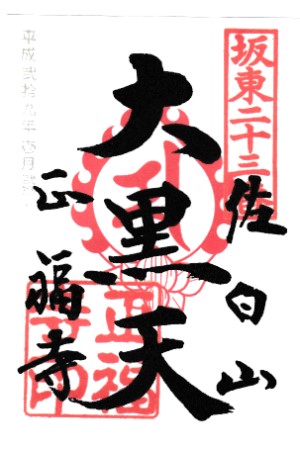 坂東二十三
佐白山
大黒天
正福寺
正福
寺印
平成弐拾九年壱月